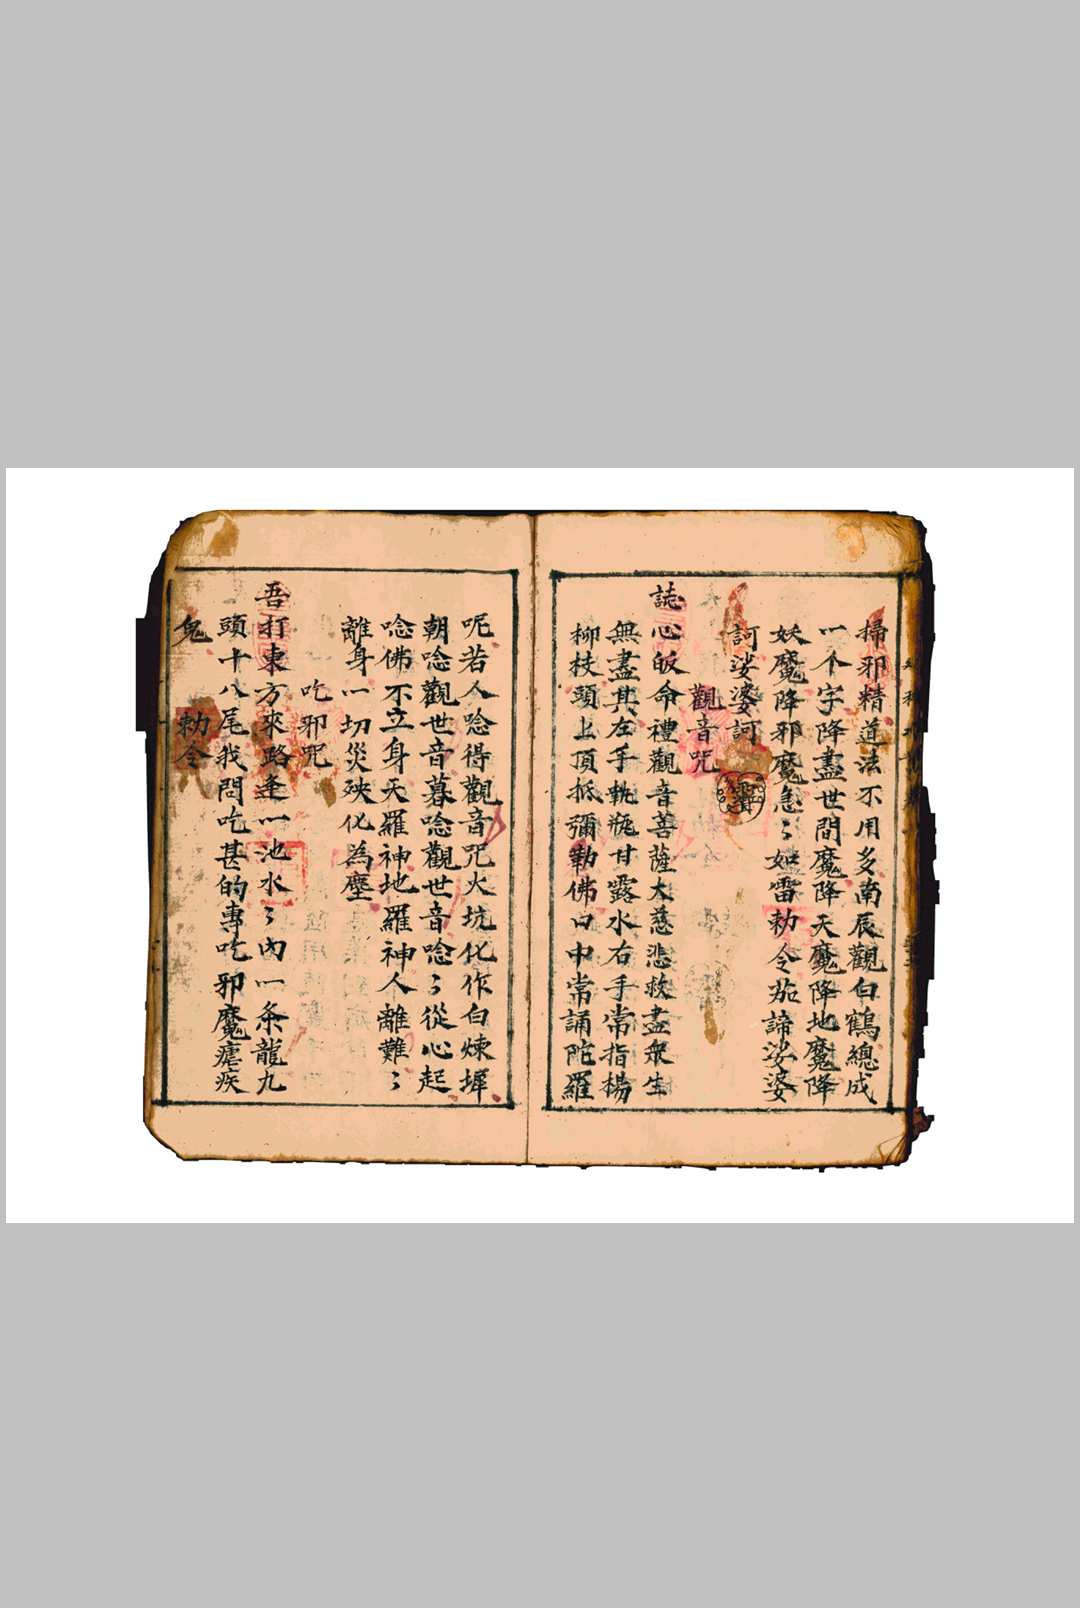 掃邪精道法不用多南辰觀白鶴總成
一个字降盡世間魔降天魔降地魔降
妖魔降邪魔急〻如雷勅令茄諦娑婆
訶娑婆訶
觀音咒
誌心皈命禮觀音菩薩大慈悲救盡衆生
無盡其左手執瓶甘露水右手常指楊
柳枝頭上頂抵彌勒佛口中常誦陀羅
呢若人唸得觀音咒火坑化作白煉墀
朝唸觀世音暮唸觀世音唸〻從心起
唸佛不立身天羅神地羅神人離難〻
離身一切災殃化為塵
吃邪咒
吾打東方來路逢一池水〻內一条龍九
頭十八尾我問吃甚的專吃邪魔瘧疾
鬼 勅令